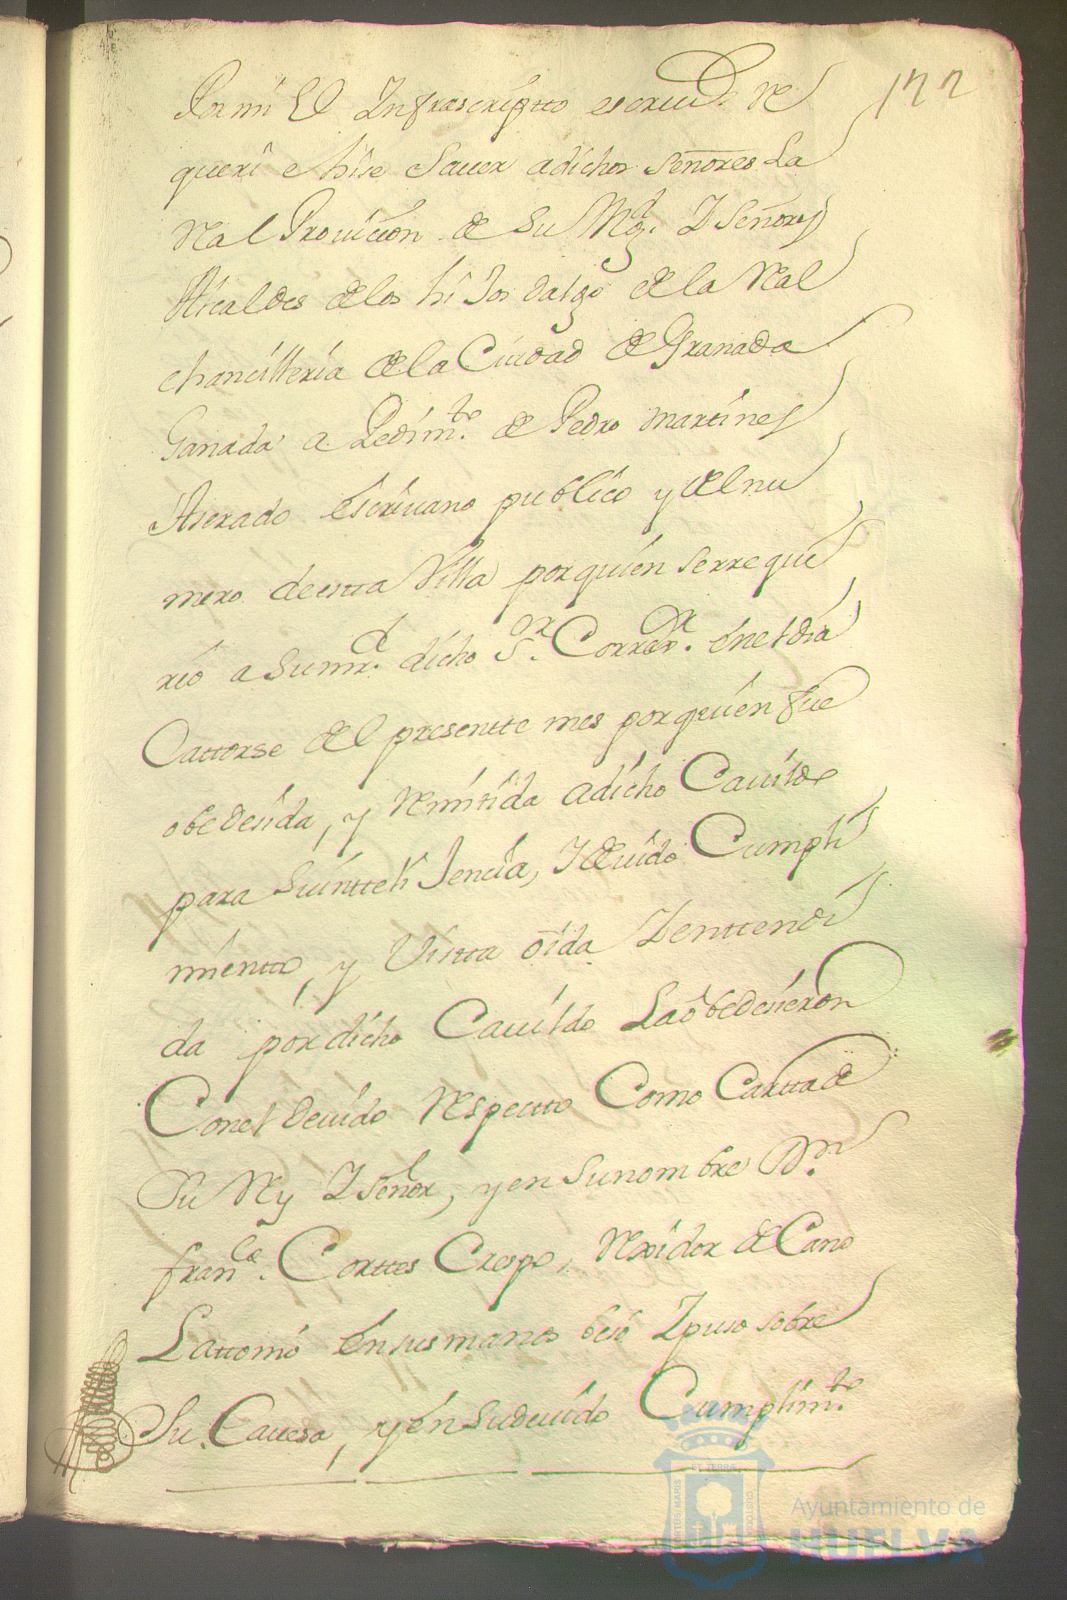 122
Por mi El Infrascriptto escriuº. Re
queri e hise Sauer adichos señores La
Ral Prouicion de Su Mgd. Y Señores
Alcaldes delos hiJos dalgo de la Real
chansilleria de la Ciudad de Granada
Ganada a Pedimto. de Pedro Martines
Escriuano publico y del nu
mero de esta Villa por quien serreque
rio a Sumrd. dicho Sor. Correxr. en el dia
Cattorse del presentte mes por quien fue
obedesida, y Remitida adicho Cauildo
para Suinttelijencia, Y deuido Cumpli
mientto, y Vistta oida Y enttendi
da por dicho Cauildo La obedesieron
Con el deuido Respectto Como Cartta de
Su Rey Y señor, y en Sunombre Dn.
franco. Corttes Crespo, Rexidor de Cano
La ttomó en sus manos besó Y puso sobre
Su Cauesa, y en Sudeuido Cumplimto.
Ayuntamiento de
HUELVA